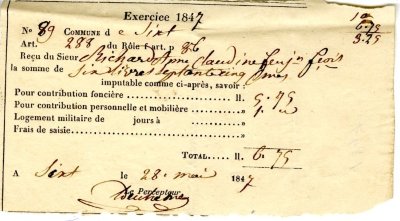 Exercice 1847
10
6-75
3-25
No 89 COMMUNE de Sixt
Art. 288 du Rôle f art. p 86
Reçu du Sieur Richard Claudine
la somme de Six livres septante cinq
imputable comme ci-après, savoir :
Pour contribution foncière ll. 5.75
Pour contribution personnelle et mobilière »
Logement militaire de jours à »
Frais de saisie »
TOTAL.... ll. 6-75
A Sixt le 28 mai 1847
Le Percepteur